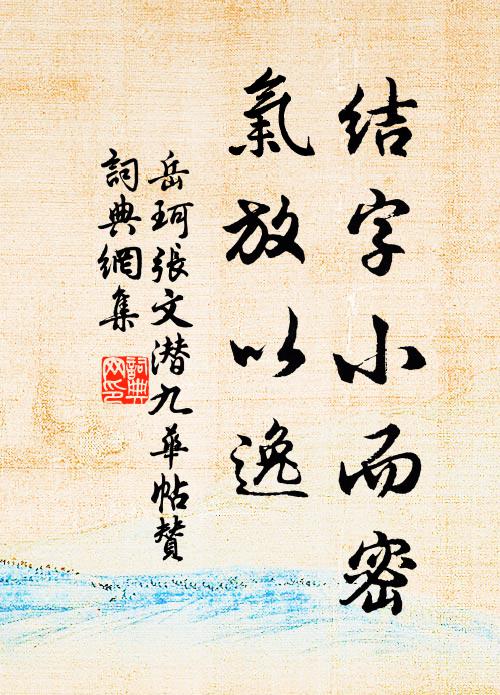 结字小而密
氣放以逸
岳珂張文潜九華帖贊
詞典網集
詞典網印